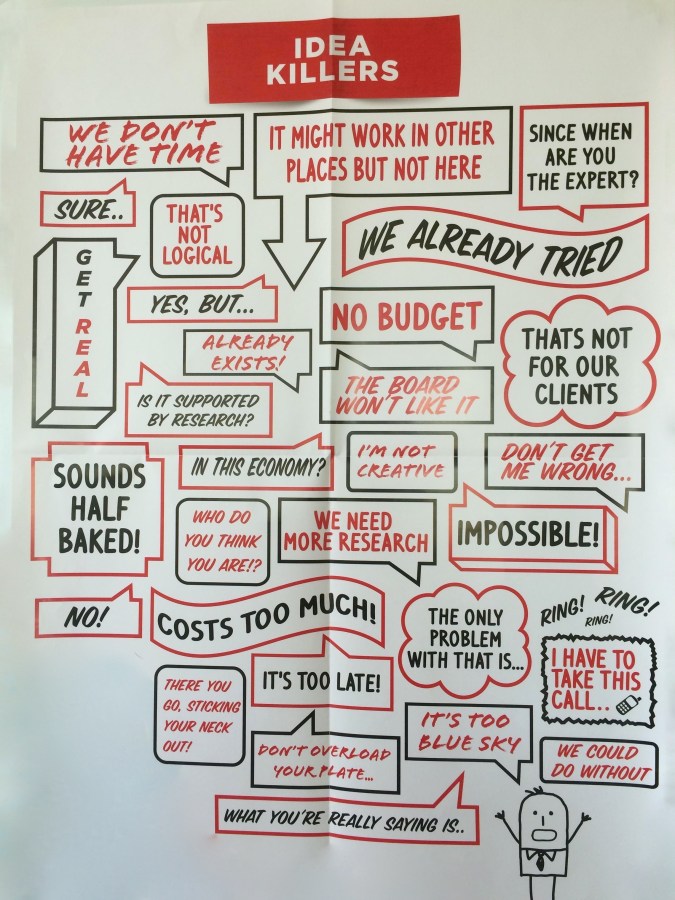 IDEA
KILLERS
WE DON'T
HAVE TIME
IT MIGHT WORK IN OTHER
PLACES BUT NOT HERE
SINCE WHEN
ARE YOU
THE EXPERT?
SURE..
THAT'S
NOT
LOGICAL
WE ALREADY TRIED
GET REAL
YES, BUT...
NO BUDGET
ALREADY
EXISTS!
THATS NOT
FOR OUR
CLIENTS
IS IT SUPPORTED
BY RESEARCH?
THE BOARD
WON'T LIKE IT
SOUNDS
HALF
BAKED!
IN THIS ECONOMY?
I'M NOT
CREATIVE
DON'T GET
ME WRONG...
WHO DO
YOU THINK
YOU ARE!?
WE NEED
MORE RESEARCH
IMPOSSIBLE!
NO!
COSTS TOO MUCH!
THE ONLY
PROBLEM
WITH THAT IS...
RING! RING!
RING!
I HAVE TO
TAKE THIS
CALL..
THERE YOU
GO, STICKING
YOUR NECK
OUT!
IT'S TOO LATE!
DON'T OVERLOAD
YOUR PLATE...
IT'S TOO
BLUE SKY
WE COULD
DO WITHOUT
WHAT YOU'RE REALLY SAYING IS..